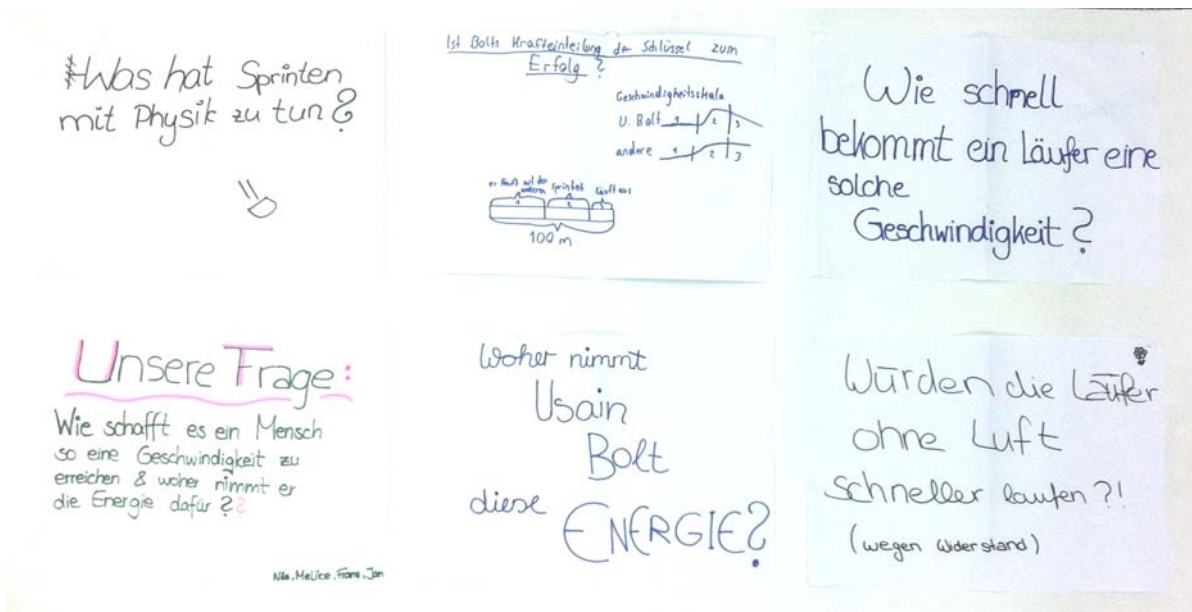 Was hat Sprinten
mit Physik zu tun?
Ist Bolts Krafteinteilung der Schlüssel zum
Erfolg?
Geschwindigkeitsskala
U. Bolt 1 2 3
andere 1 2 3
er läuft mit den
anderen sprintet läuft aus
1 2 3
100 m
Wie schnell
bekommt ein Läufer eine
solche
Geschwindigkeit?
Unsere Frage:
Wie schafft es ein Mensch
so eine Geschwindigkeit zu
erreichen & woher nimmt er
die Energie dafür??
Nils, Melice, Frans, Jan
Woher nimmt
Usain
Bolt
diese ENERGIE?
Würden die Läufer
ohne Luft
schneller laufen?!
(wegen Widerstand)